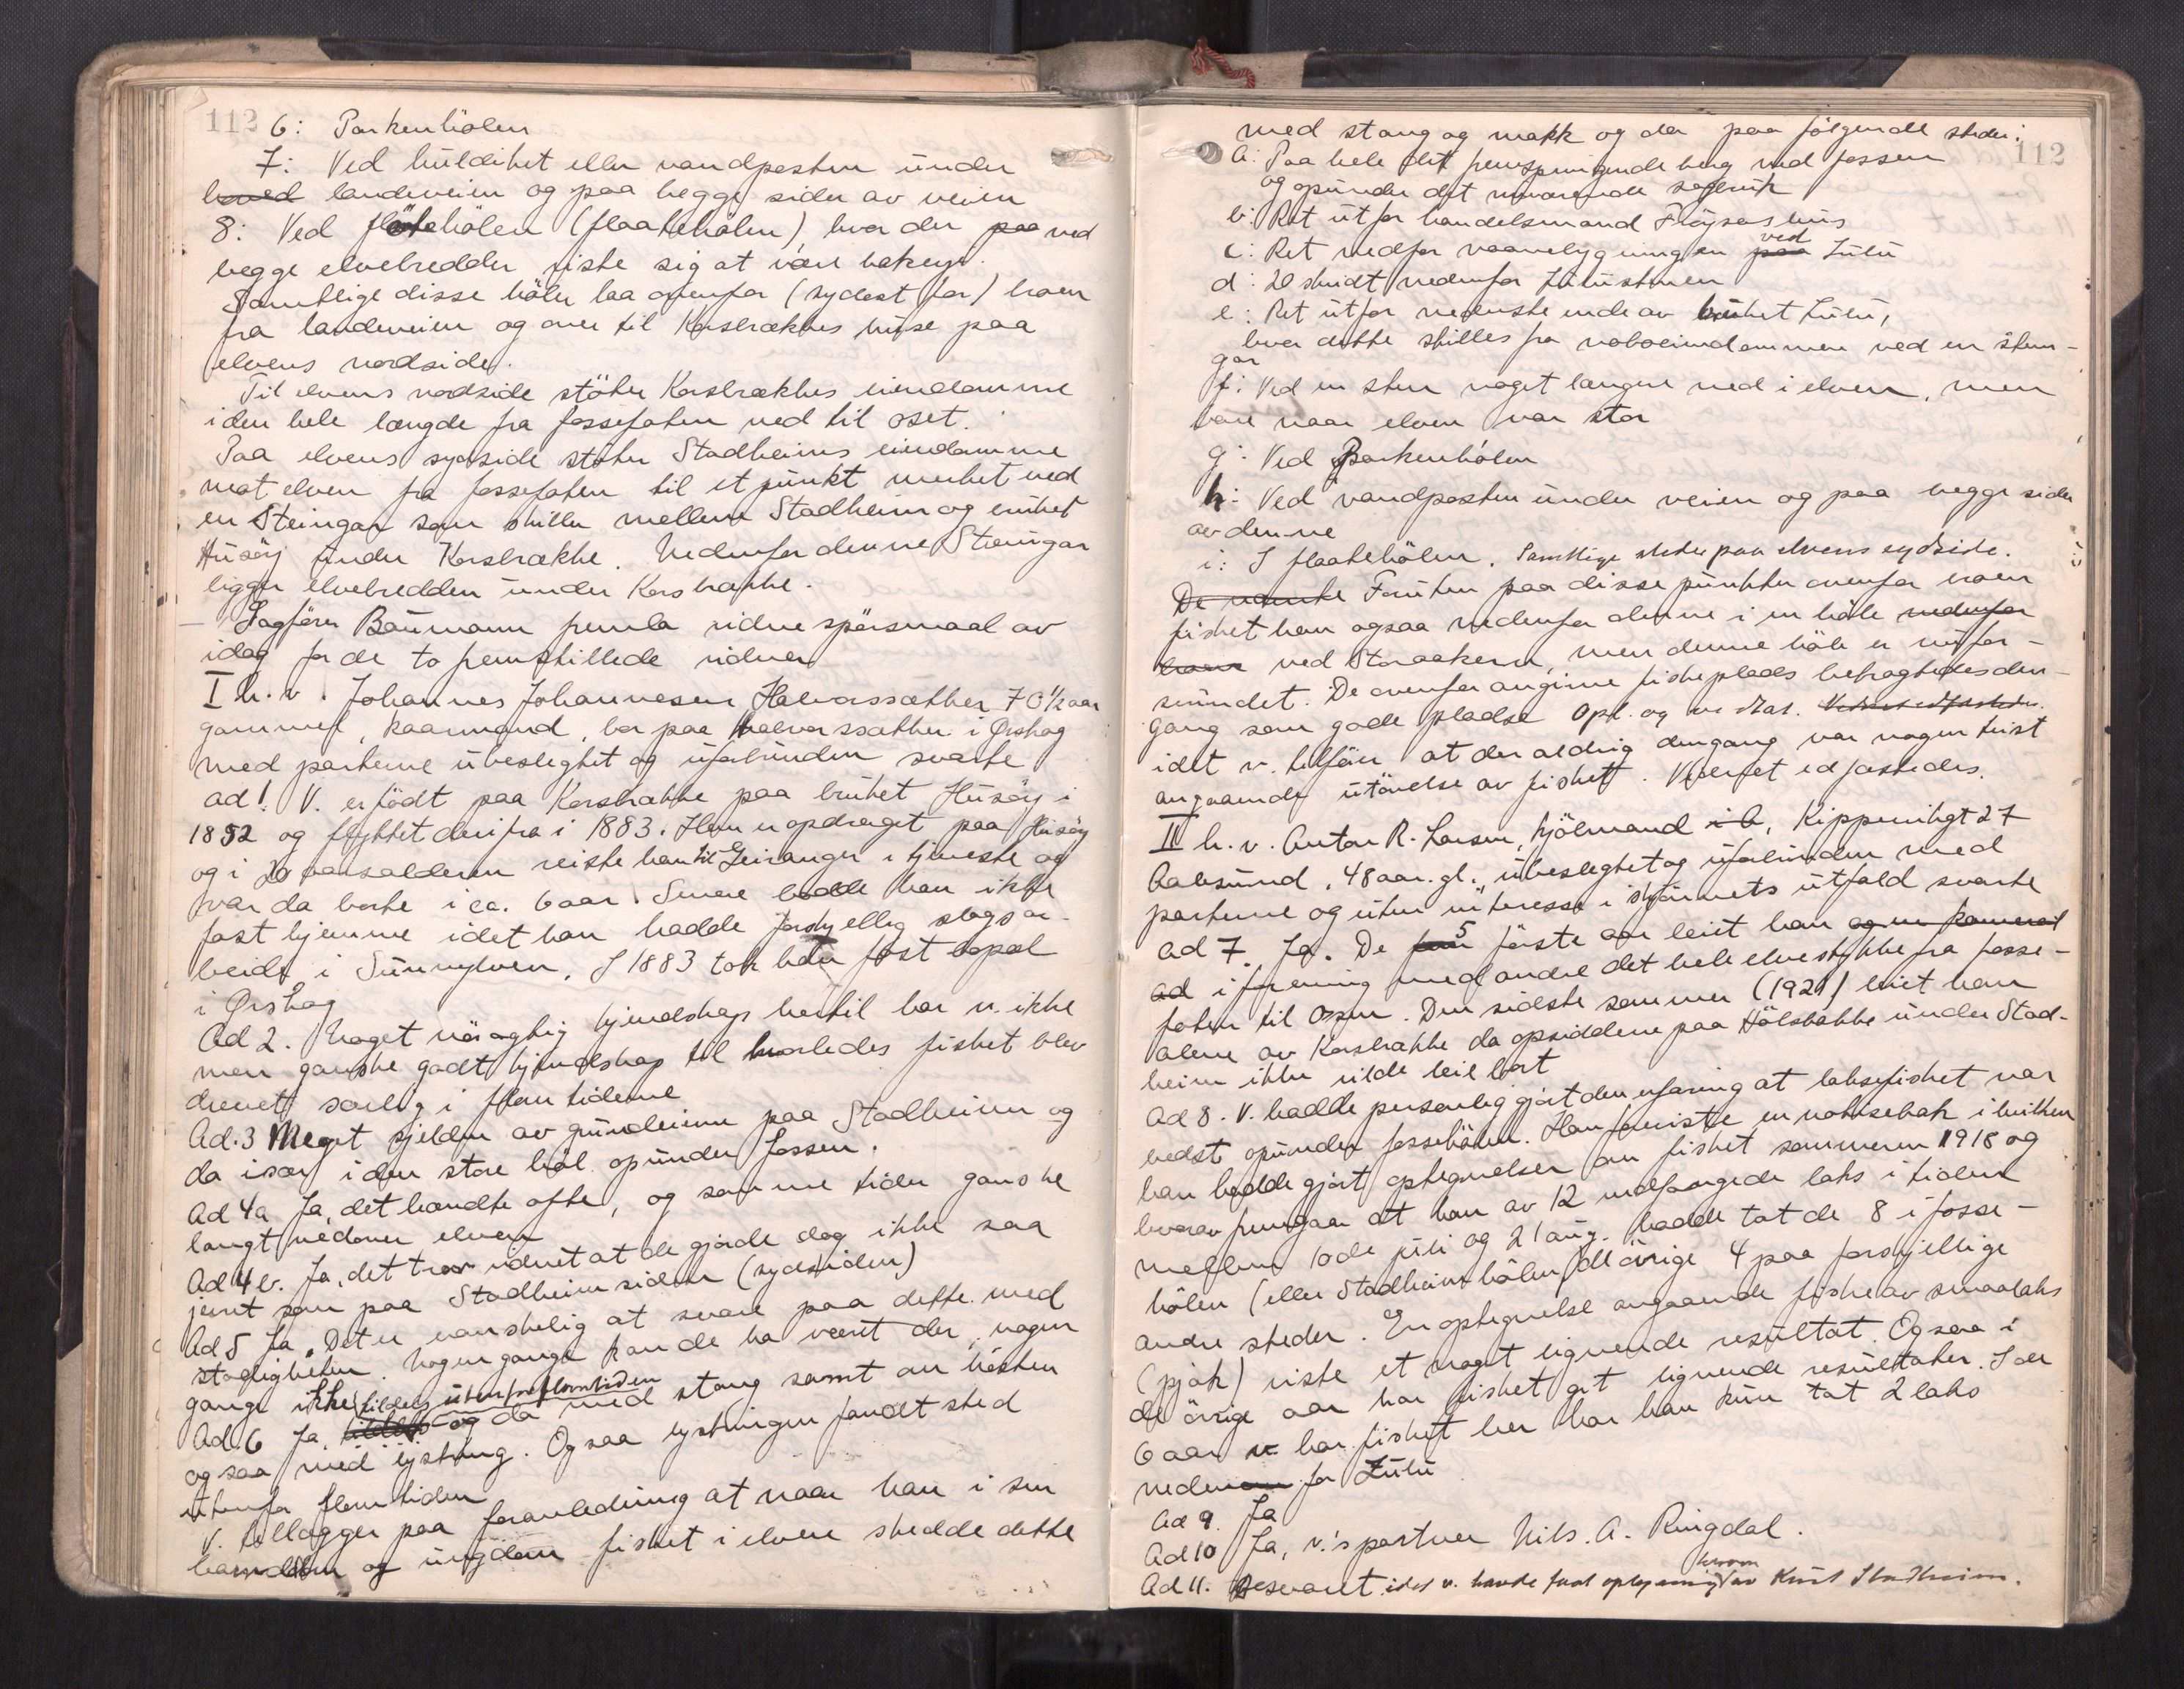 112
6: Parkenhölen
7: Ved huldihet eller vandposten under
landeveien og paa begge sider av veien
8: Ved flötehölen (flaatehölen) hvor der paa ved
begge elvebredder viste sig at være bakevje.
Samtlige disse höler laa ovenfor (sydost for) broen
fra landeveien og over til Korsbrækkes huse paa
elvens nordside.
Til elvens nordside stöter Korsbrækkes eiendomme
i den hele længde fra fossefoten ned til oset.
Paa elvens sydside stöter Stadheims eiendomme
mot elven fra fossefoten til et punkt merket ved
en Steingar som skiller mellem Stadheim og bruket
Husöy under Korsbrække. Nedenfor denne Steingar
ligger elvebredden under Korsbrække.
Sagförer Baumann fremla vidnespörsmaal av
idag for de to fremstillede vidner
I h. v. Johannes Johannesen Halvorssæther 70½ aar
gammel, kaarmand, bor paa Halvorssæther i Ørskog
med parterne ubeslegtet og uforbunden svarte
ad 1. V. er födt paa Korsbrække paa bruket Husöy i
1852 og flyttet derifra i 1883. Han er opdraget paa Husöy
og i 20 aarsalderen reiste han til Geiranger i tjeneste og
var da borte i ca. 6 aar. Senere bodde han ikke
fast hjemme idet han hadde forskjellig slags ar-
beide i Sunnylven. I 1883 tok han fast bopæl
i Ørskog
Ad 2. Noget nöiagtig kjendskap hertil har v. ikke
men ganske godt kjendskap til hvorledes fisket blev
drevet særlig i flomtiderne
Ad. 3 Meget sjelden av grundeierne paa Stadheim og
da især i den store höl opunder fossen.
Ad 4a Ja, det hændte ofte, og somme tider ganske
langt nedover elven
Ad 4b. Ja, det tror vidnet at de gjorde dog ikke saa
jemt som paa Stadheimsiden (sydsiden)
Ad 5 Ja. Det er vanskelig at svare paa dette med
stadigheten. Nogen gange kan de ha været der, nogen
gange ikke
Ad. 6 Ja, tildels utenfor flomtiden og da med stang samt om hösten
ogsaa med lystring. Ogsaa lystringen fandt sted
utenfor flomtiden
V. tillægger paa foranledning at naar han i sin
barndom og ungdom fisket i elven skedde dette
112
med stang og makk og da paa fölgende steder:
a: Paa hele det fremspringende berg ved fossen
og opunder det nuværende sagbruk
b: Ret utfor handelsmand Flöysos hus
c: Ret nedfor vaaningsbygningen paa ved Lulu
d: 20 skridt nedenfor Lulustenen
e: Ret utfor nederste ende av bruket Lulu,
hvor dette skilles fra naboeiendommen ved en sten-
gar
f: Ved en sten noget længere ned i elven, men
bare naar elven var stor
g: Ved Parkenhölen
h: Ved vandposten under veien og paa begge sider
av denne
i: I flaatehölen. Samtlige steder paa elvens sydside.
De nævnte Foruten paa disse punkter ovenfor broen
fisket han ogsaa nedenfor denne i en höle nedenfor
broen ved Storaakeren, men denne höle er nu for-
svundet. De ovenfor angivne fiskeplads betragtedes den-
gang som gode pladse Opl. og vedtat.
idet v. tilföier at der aldrig dengang var nogen tvist
angaaende utövelse av fisket. Vidnet edfæstedes.
II h. v. Anton R. Larsen, hjölmand i A, Kipperviktgt 27
Aalesund, 48 aar. gl., ubeslegtet og uforbunden med
parterne og uten interesse i skjönnets utfald svarte
Ad 7. Ja. De fem 5 förste aar leiet han og en kamerat
ad i forening med andre det hele elvestykke fra fosse-
foten til Osen. Den sidste sommer (1921) leiet han
alene av Korsbrække da opsidderne paa Hölsbakke under Stad-
heim ikke vilde leie bort
Ad 8. V. hadde personlig gjort den erfaring at laksefisket var
bedst opunder fossehölen. Han foreviste en notisebok i hvilken
han hadde gjort optegnelser om fisket sommeren 1918 og
hvorav fremgaar at han av 12 indfangede laks i tiden
mellem 10de juli og 21 aug. hadde tat de 8 i fosse-
hölen (eller Stadheimshölen) de övrige 4 paa forskjellige
andre steder. En optegnelse angaaende fiske av smaalaks
(pjak) viste et noget lignende resultat. Ogsaa i
de övrige aar har fisket git lignende resultater. I de
6 aar v. har fisket her har han kun tat 2 laks
nedenom for Lulu
Ad 9. Ja
Ad 10 Ja, v.'s partner Nils. A. Ringdal.
Ad 11. Besvaret idet v. havde faat oplysning herom av Knut Stadheim.